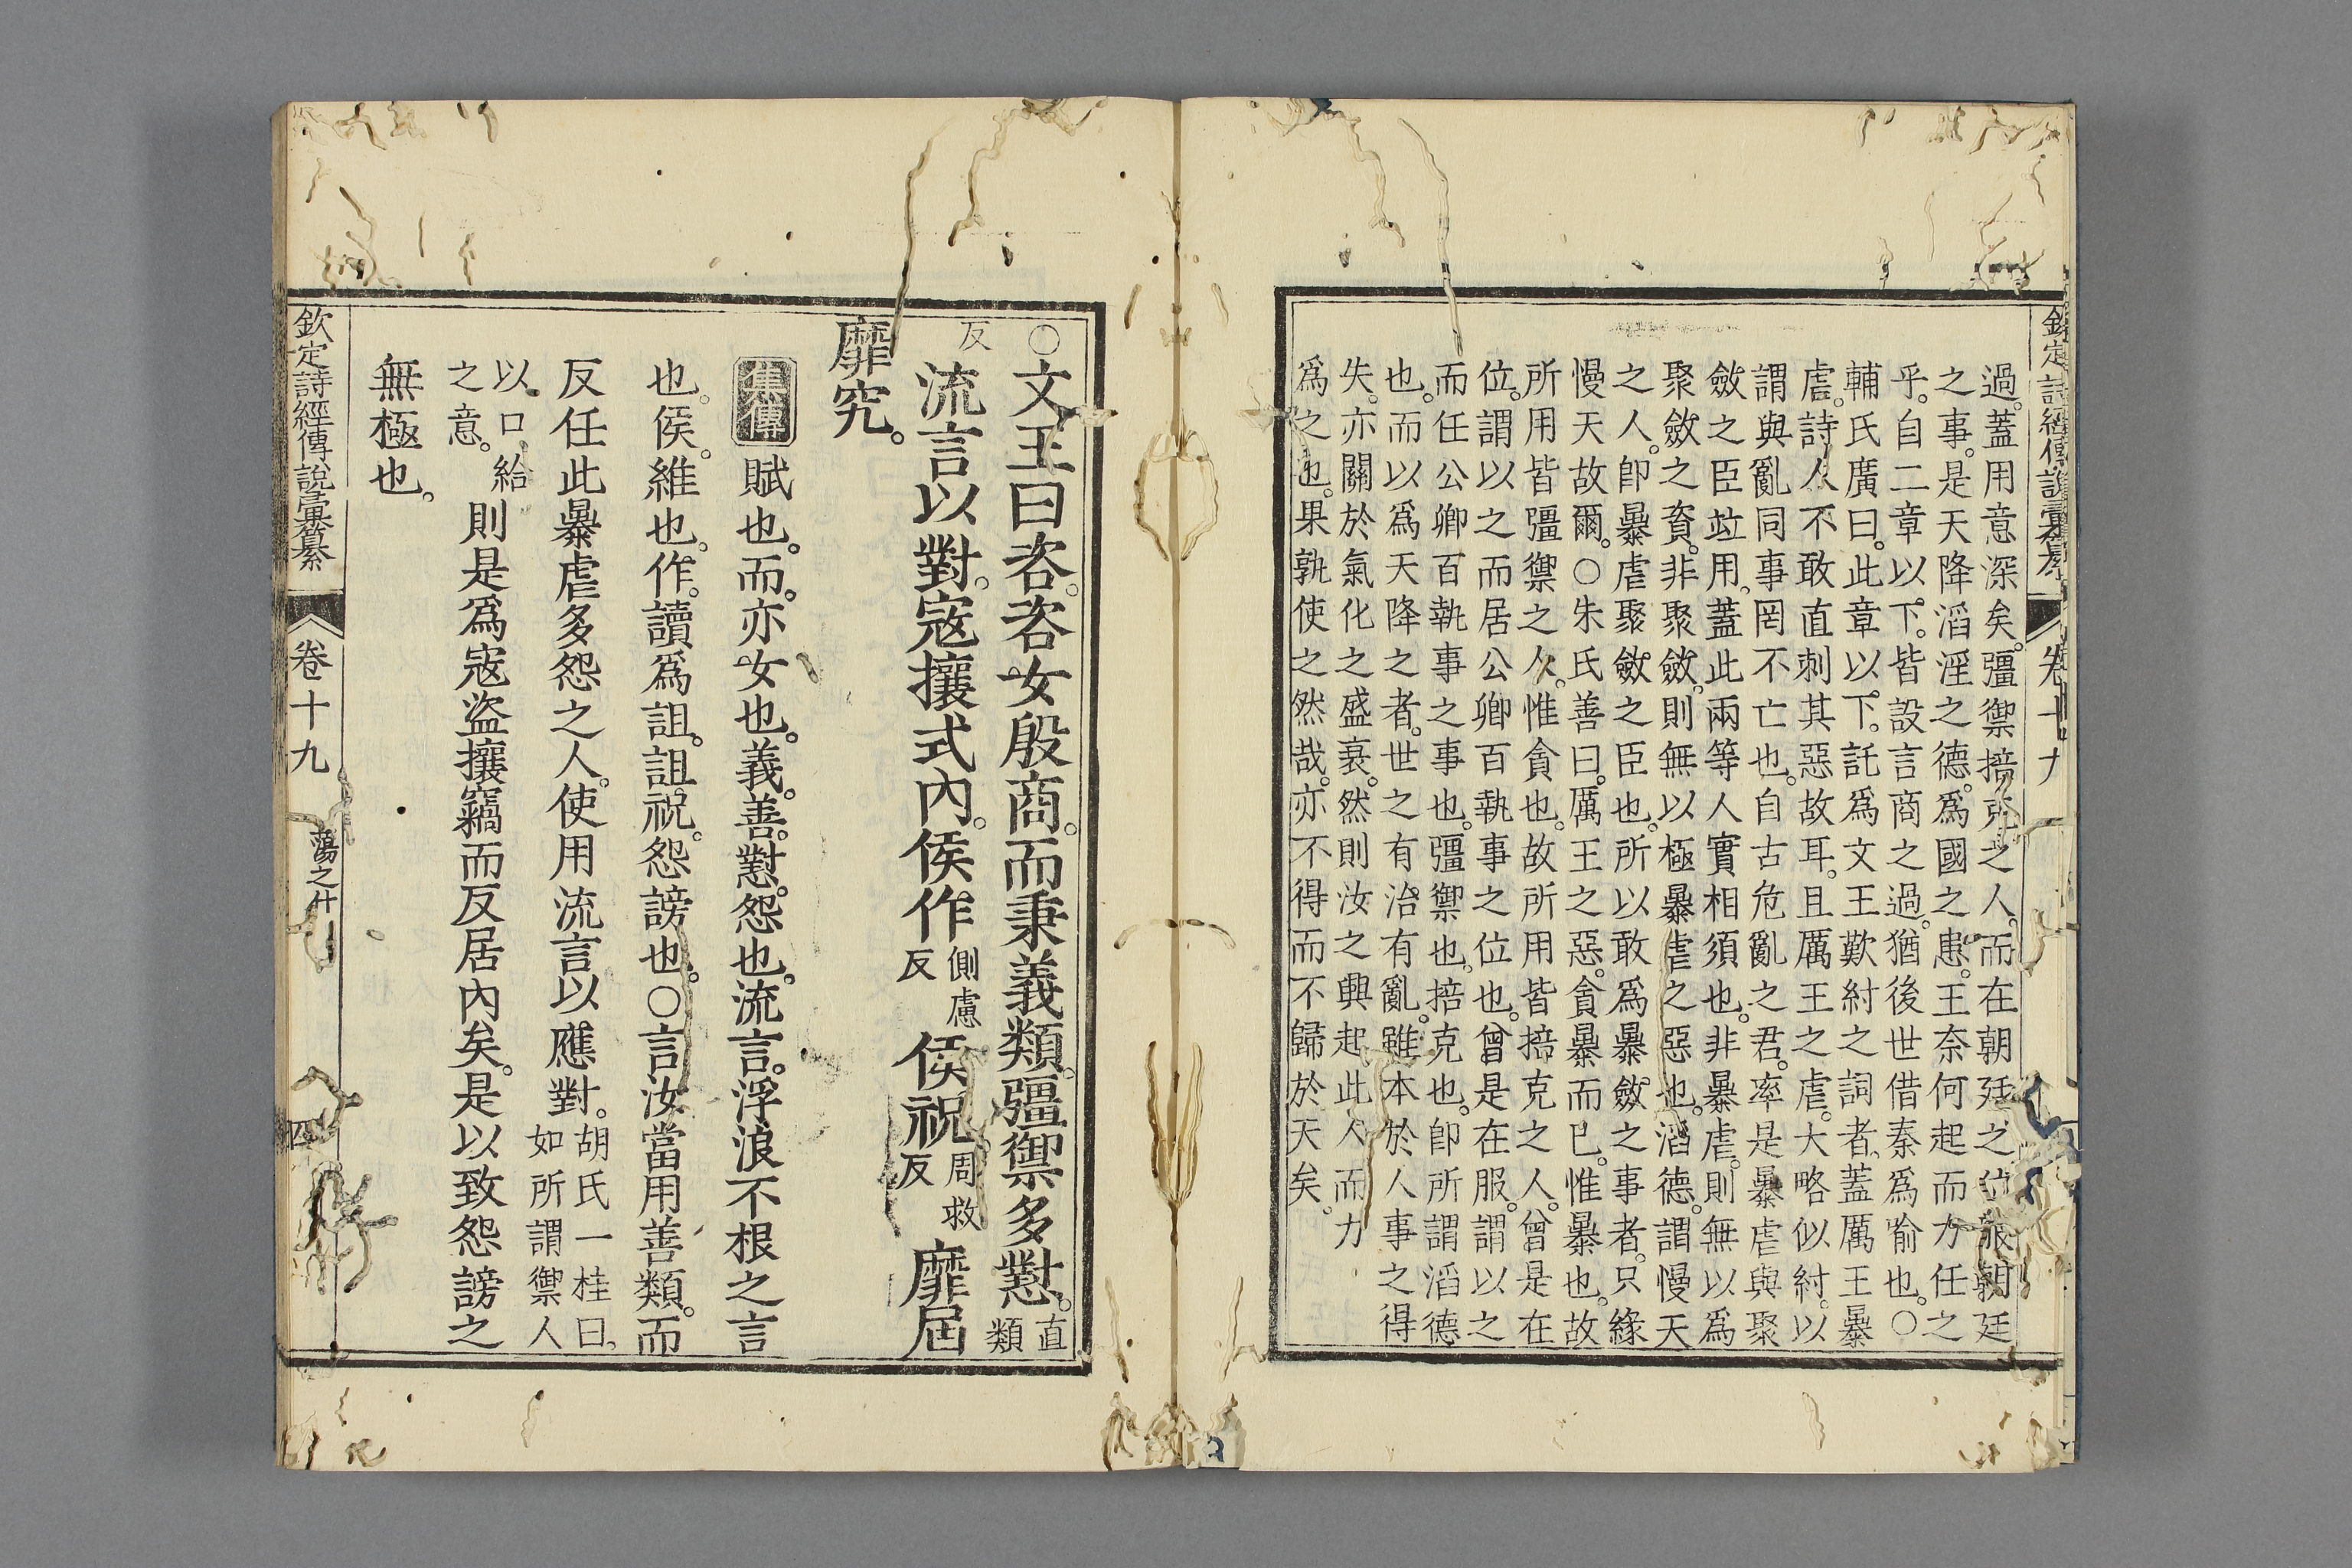 欽定詩經傳說彙纂
卷十九
過。蓋用意深矣。彊禦掊克之人。而在朝廷之位。服朝廷
之事。是天降滔淫之德。爲國之患。王奈何起而力任之
乎。自二章以下。皆設言商之過。猶後世借秦爲喻也。○
輔氏廣曰。此章以下。託爲文王歎紂之詞者。蓋厲王暴
虐。詩人不敢直刺其惡故耳。且厲王之虐。大略似紂。以
謂與亂同事罔不亡也。自古危亂之君。率是暴虐與聚
斂之臣竝用。蓋此兩等人實相須也。非暴虐。則無以爲
聚斂之資。非聚斂。則無以極暴虐之惡也。滔德。謂慢天
之人。卽暴虐聚斂之臣也。所以敢爲暴斂之事者。只緣
慢天故爾。○朱氏善曰。厲王之惡。貪暴而已。惟暴也。故
所用皆彊禦之人。惟貪也。故所用皆掊克之人。曾是在
位。謂以之而居公卿百執事之位也。曾是在服。謂以之
而任公卿百執事之事也。彊禦也。掊克也。卽所謂滔德
也。而以爲天降之者。世之有治有亂。雖本於人事之得
失。亦關於氣化之盛衰。然則汝之興起此人而力
爲之也。果孰使之然哉。亦不得而不歸於天矣。
○文王曰咨。咨女殷商。而秉義類。彊禦多懟。直類
反流言以對。寇攘式內。侯作側慮反侯祝周救反靡屆
靡究。
集傳賦也。而。亦女也。義。善。懟。怨也。流言。浮浪不根之言
也。侯。維也。作。讀爲詛。詛祝。怨謗也。○言汝當用善類。而
反任此暴虐多怨之人。使用流言以應對。胡氏一桂曰。如所謂禦人
以口給之意。則是爲寇盜攘竊而反居內矣。是以致怨謗之
無極也。
欽定詩經傳說彙纂
卷十九
蕩之什
四